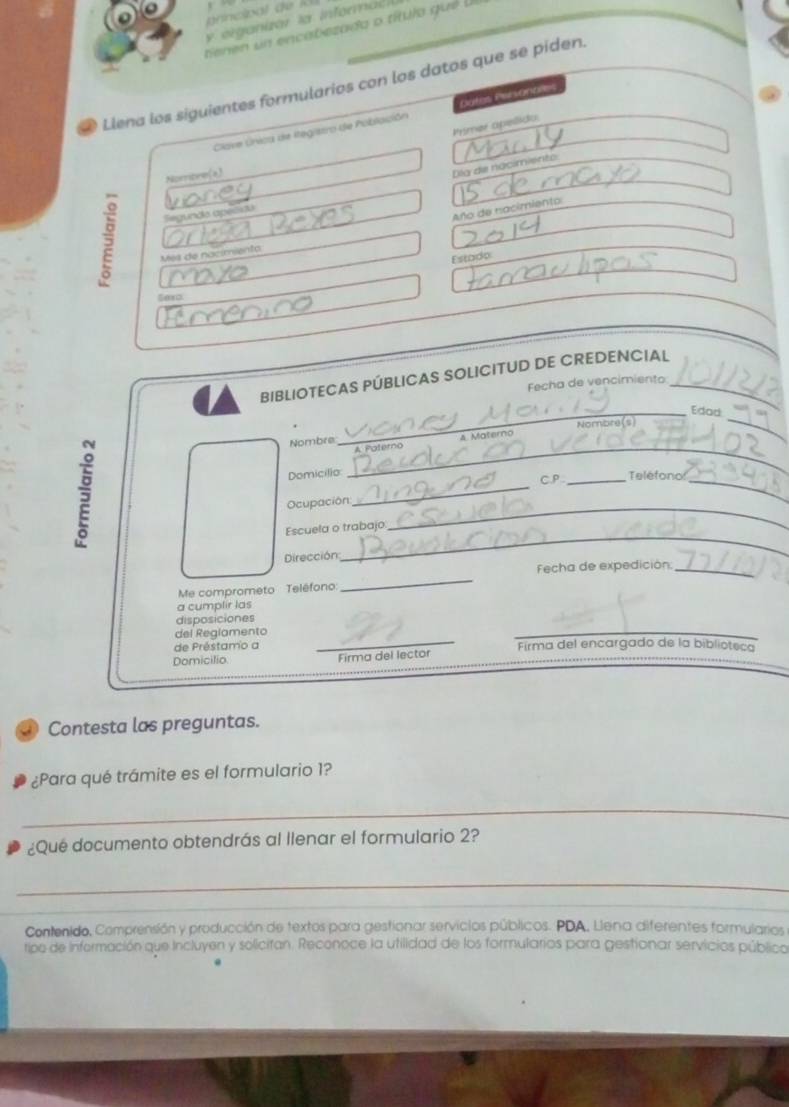 y organizar la información
tienen un encabezado o título que
Llena los siguientes formularios con los datos que se piden.
Datos Personales
Clave Única de Registro de Población
Primer apellido:
Marily
Nombre(s)
vianey
Día de nacimiento:
15 de mayo
Segundo apellido:
Ortega Reyes
Año de nacimiento:
2014
Mes de nacimiento:
mayo
Estado:
tamaulipas
Sexo:
Femenino
Formulario 1
BIBLIOTECAS PÚBLICAS SOLICITUD DE CREDENCIAL
Fecha de vencimiento:
Nombre: Vianey Marily Edad:
A. Paterno A. Materno Nombre(s)
Domicilio:
Ocupación: ninguno C.P. Teléfono:
Escuela o trabajo: escuela
Dirección: Revolucion verde
Me comprometo Teléfono: Fecha de expedición:
a cumplir las
disposiciones
del Reglamento
de Préstamo a
Domicilio. Firma del lector Firma del encargado de la biblioteca
Formulario 2
Contesta las preguntas.
¿Para qué trámite es el formulario 1?
¿Qué documento obtendrás al llenar el formulario 2?
Contenido. Comprensión y producción de textos para gestionar servicios públicos. PDA. Llena diferentes formularios
tipo de información que incluyen y solicitan. Reconoce la utilidad de los formularios para gestionar servicios